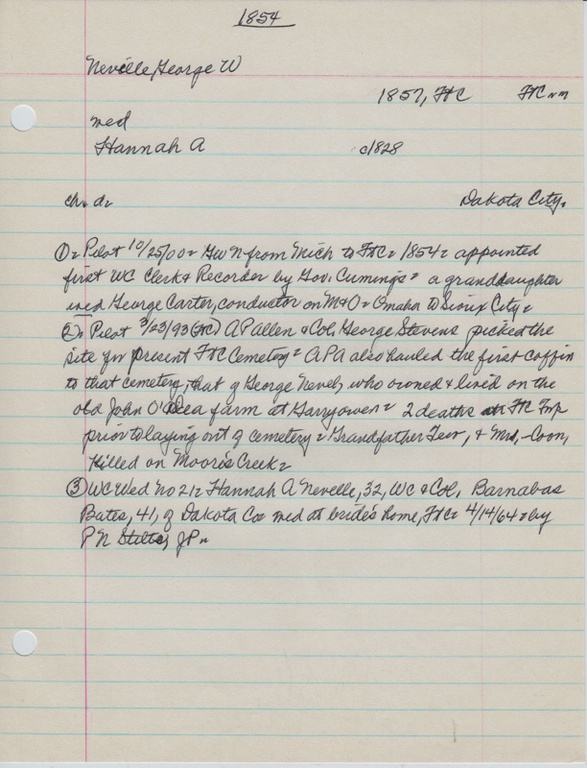 1854
Neville, George W
1857, FtC FtC nm
med
Hannah A c/828
ch. d= Dakota City.
① = Pilot 10/25/00 = GWN from Mich to FtC = 1854 = appointed
first WC Clerk & Recorder by Gov. Cumings = a granddaughter
wed George Carter, conductor on M&O = Omaha to Sioux City =
② = Pilot 9/23/93 (FtC) A P Allen & Col. George Stevens picked the
site for present FtC Cemetery = APA also hauled the first coffin
to that cemetery, that of George Nevel, who owned & lived on the
old John O'Dea farm at Garryowen = 2 deaths FtC Twp
prior to laying out of cemetery = Grandfather & Mrs. Coon,
killed on Moore's Creek =
③ WC Wed No 21 = Hannah A Nevelle, 32, WC & Col. Barnabas
Bates, 41, of Dakota Co = med at bride's home, FtC = 4/14/64 = by
P N Stilts, JP =